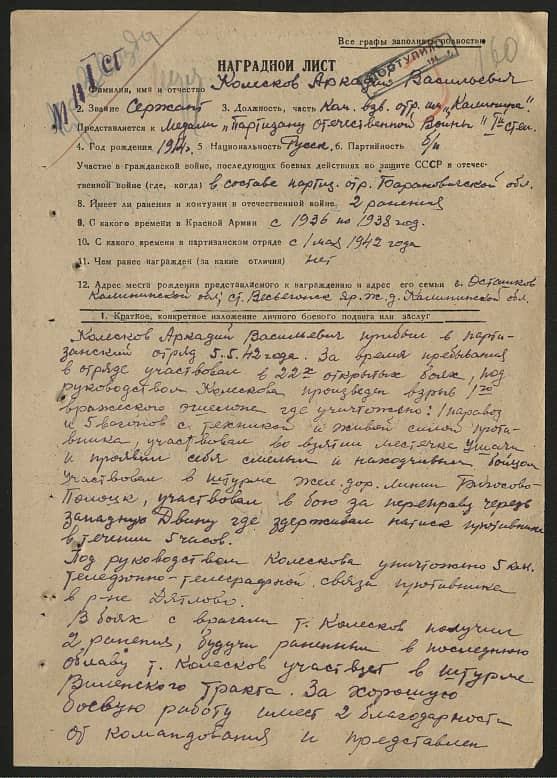 Все графы заполнять полностью
НАГРАДНОЙ ЛИСТ
1. Фамилия, имя и отчество Колесков Аркадий Васильевич
2. Звание Сержант 3. Должность, часть Ком. взв. отр. им „Калинина"
Представляется к Медали „Партизану Отечественной Войны" I й степ.
4. Год рождения 5 Национальность Русск. 6. Партийность б/п
Участие в гражданской войне, последующих боевых действиях по защите СССР в отечественной
ственной войне (где, когда) в составе партиз. отр. Барановичской обл.
8. Имеет ли ранения и контузии в отечественной войне. 2 ранения
9. С какого времени в Красной Армии с 1936 по 1938 год.
10. С какого времени в партизанском отряде с 1 мая 1942 года
11. Чем ранее награжден (за какие отличия) нет
12. Адрес места рождения представляемого к награждению и адрес его семьи г. Осташков
Калининской обл; ст. Весьегонск Яр. ж. д. Калининской обл.
1. Краткое, конкретное изложение личного боевого подвига или заслуг
Колесков Аркадий Васильевич прибыл в парти-
занский отряд 5.5.42 года. За время пребывания
в отряде участвовал в 22х открытых боях, под
руководством Колескова произведен взрыв 1го
вражеского эшелона где уничтожено: 1 паровоз
и 5 вагонов с техникой и живой силой проти-
вника, участвовал во взятии местечка Ушачи
и проявил себя смелым и находчивым бойцом
Участвовал в штурме жел. дор. линии
Полоцк, участвовал в бою за переправу через
западную Двину где здерживал натиск противника
в течении 5 часов.
Под руководством Колескова уничтожено 5 клм.
телефонно-телеграфной связи противника
в р-не Дятлово.
В боях с врагами т. Колесков получил
2 ранения, будучи раненным в последнюю
облаву т. Колесков участвует в штурме
Виленского тракта. За хорошую
боевую работу имеет 2 благодарности
от командования и представлен